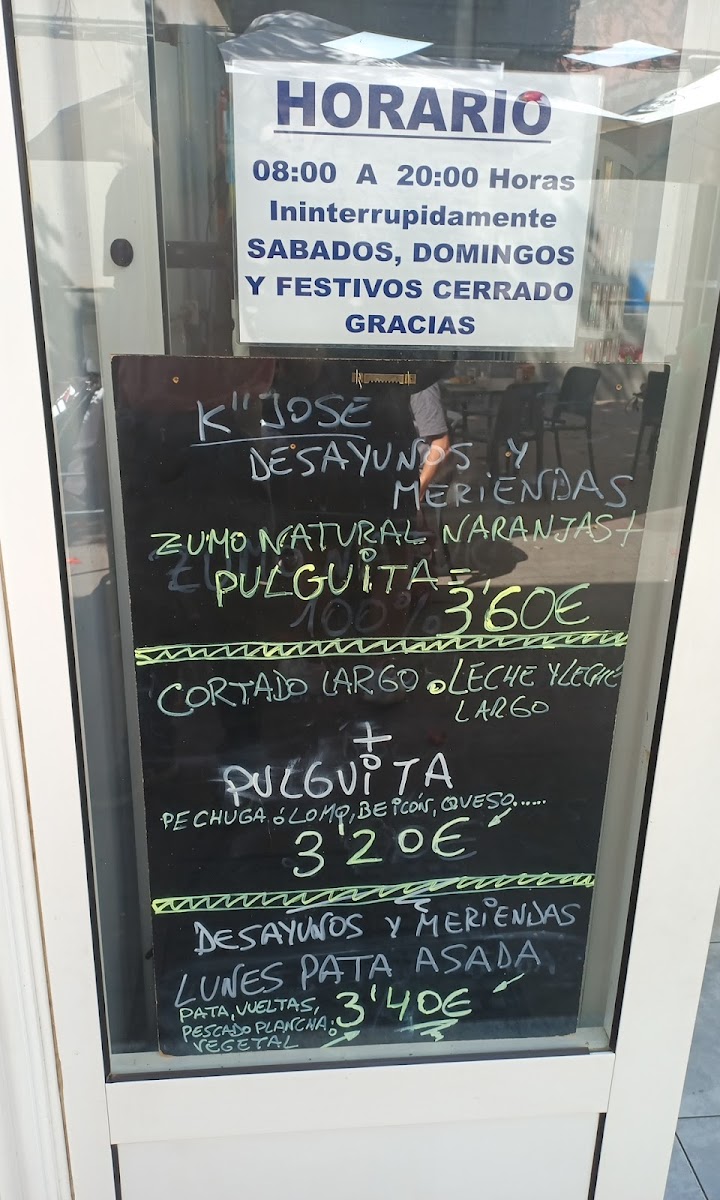 HORARIO
08:00 A 20:00 Horas
Ininterrupidamente
SABADOS, DOMINGOS
Y FESTIVOS CERRADO
GRACIAS
K" JOSE
DESAYUNOS Y
MERIENDAS
ZUMO NATURAL NARANJAS +
PULGUITA =
100%
3'60€
CORTADO LARGO o LECHE Y LECHE
LARGO
+
PULGUITA
PECHUGA ó LOMO, BEICÓN, QUESO.....
3'20€
DESAYUNOS Y MERIENDAS
LUNES PATA ASADA
PATA, VUELTAS,
PESCADO PLANCHA o
VEGETAL
3'40€